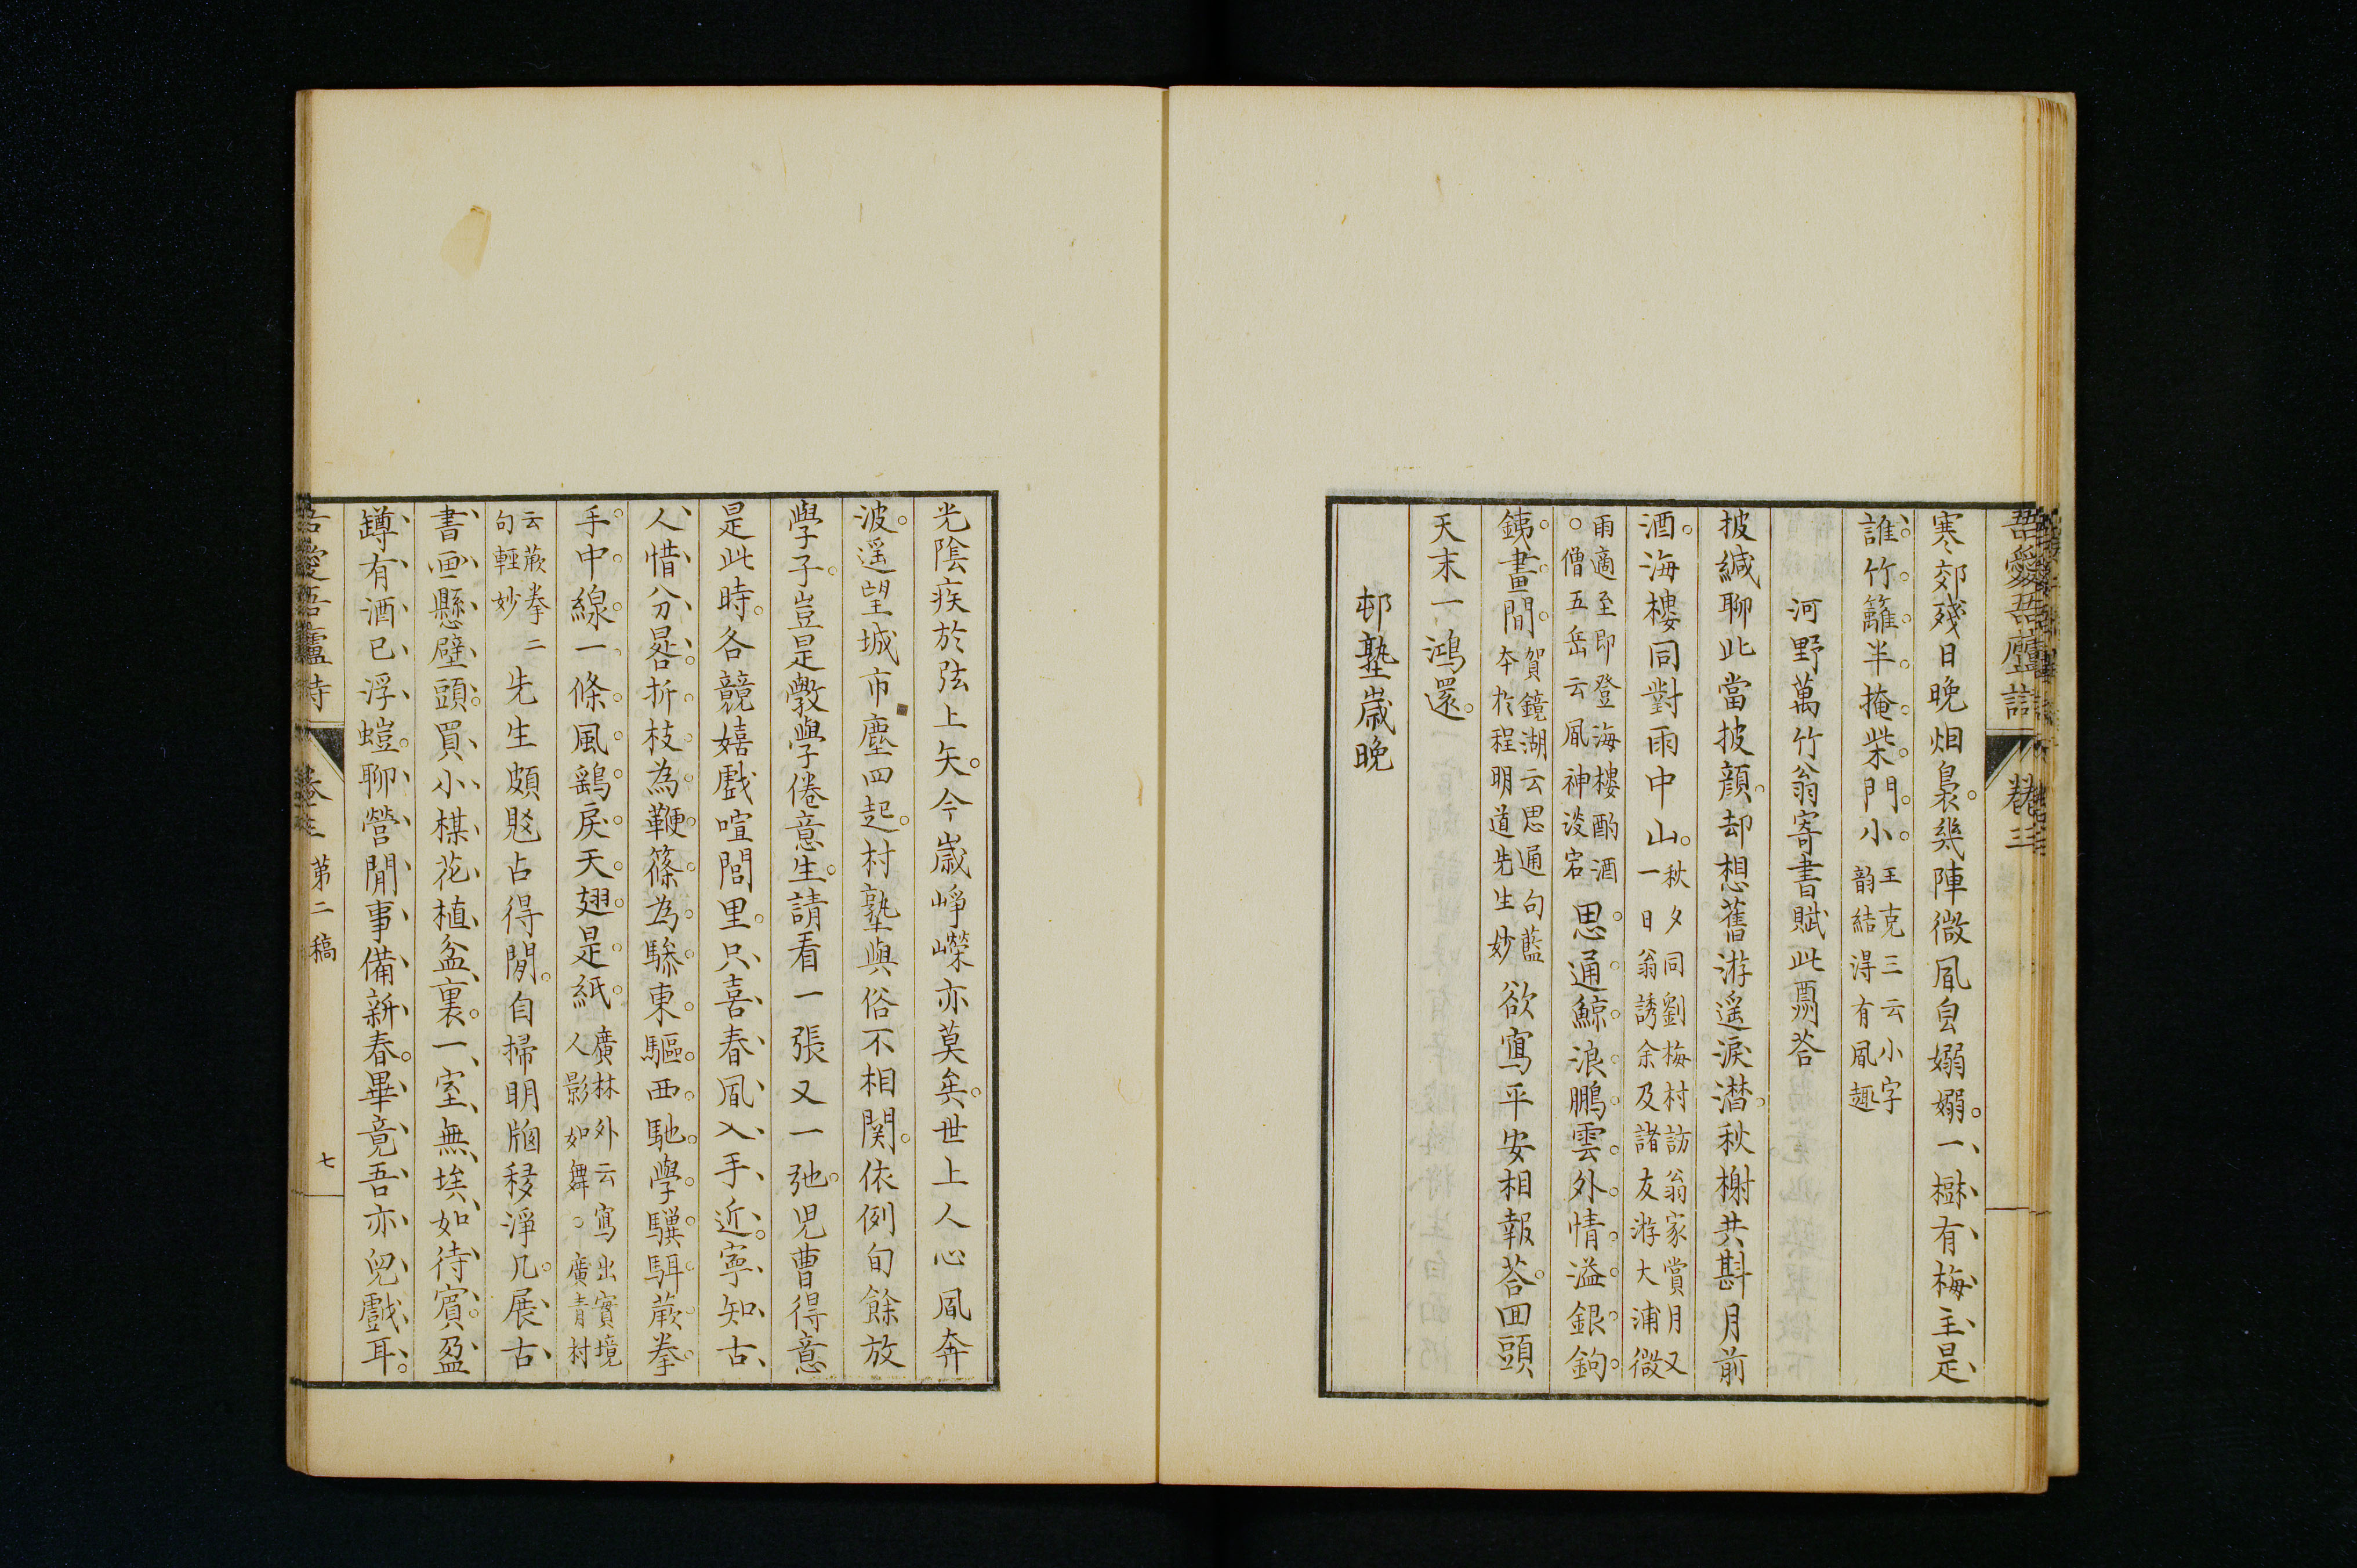 吾愛吾廬詩 卷三
寒郊殘日晚烟裊。幾陣微風自嫋嫋。一樹有梅主是
誰竹籬半掩柴門小。王克三云小字
韵結得有風趣
河野萬竹翁寄書賦此酬答
披緘聊此當披顔。却想舊游遥淚潸。秋榭共斟月前
酒。海樓同對雨中山。秋夕同劉梅村訪翁家賞月又
一日翁誘余及諸友游大浦微
雨適至即登海樓酌酒
○僧五岳云風神淡宕
思通鯨浪鵬雲外情溢銀鉤
銕畫間。賀鏡湖云思通句藍
本於程明道先生妙
欲寫平安相報荅。回頭
天末一鴻還。
邨塾歳晚
光陰疾於弦上矢。今歳崢嶸亦莫矣。世上人心風奔
波。遥望城市塵四起。村塾與俗不相関。依例旬餘放
學子。豈是敩學倦意生。請看一張又一弛。児曹得意
是此時。各競嬉戲喧閭里。只喜春風入手近。寧知古
人惜分晷。折枝為鞭篠為驂。東驅西馳學騏駬。蕨拳
手中線一條。風鷂戾天翅是紙。廣林外云寫出實境
人影如舞。○廣青村
云蕨拳二
句輕妙
先生頗覎占得閒。自掃明牕移淨几。展古
書画懸壁頭。買小棋花植盆裏。一室無埃如待賓。盈
罇有酒已浮螘。聊營閒事備新春。畢竟吾亦兒戲耳。
吾愛吾廬詩 卷三 第二稿 七